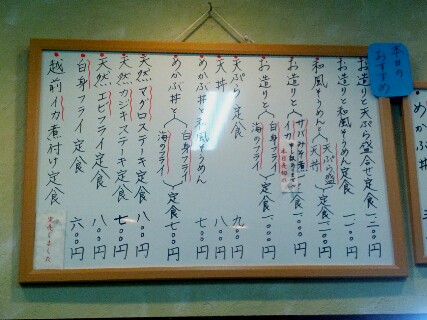 本日の
おすすめ
お造りと天ぷら盛合せ定食 一二〇〇円
お造りと和風そうめん定食 一一〇〇円
和風そうめんと
天ぷら盛
天丼
定食 一一〇〇円
お造りと
サバみそ煮
イカ
定食 一〇〇〇円
お造りと
白身フライ
海のフライ
定食 一〇〇〇円
天ぷら定食 九〇〇円
天丼 八〇〇円
めかぶ丼と和風そうめん 七〇〇円
めかぶ丼と
白身フライ
海のフライ
定食 七〇〇円
天然マグロステーキ定食 八〇〇円
天然カジキステーキ定食 七〇〇円
天然エビフライ定食 八〇〇円
白身フライ定食 六〇〇円
越前イカ煮付け定食
完売しました
めか